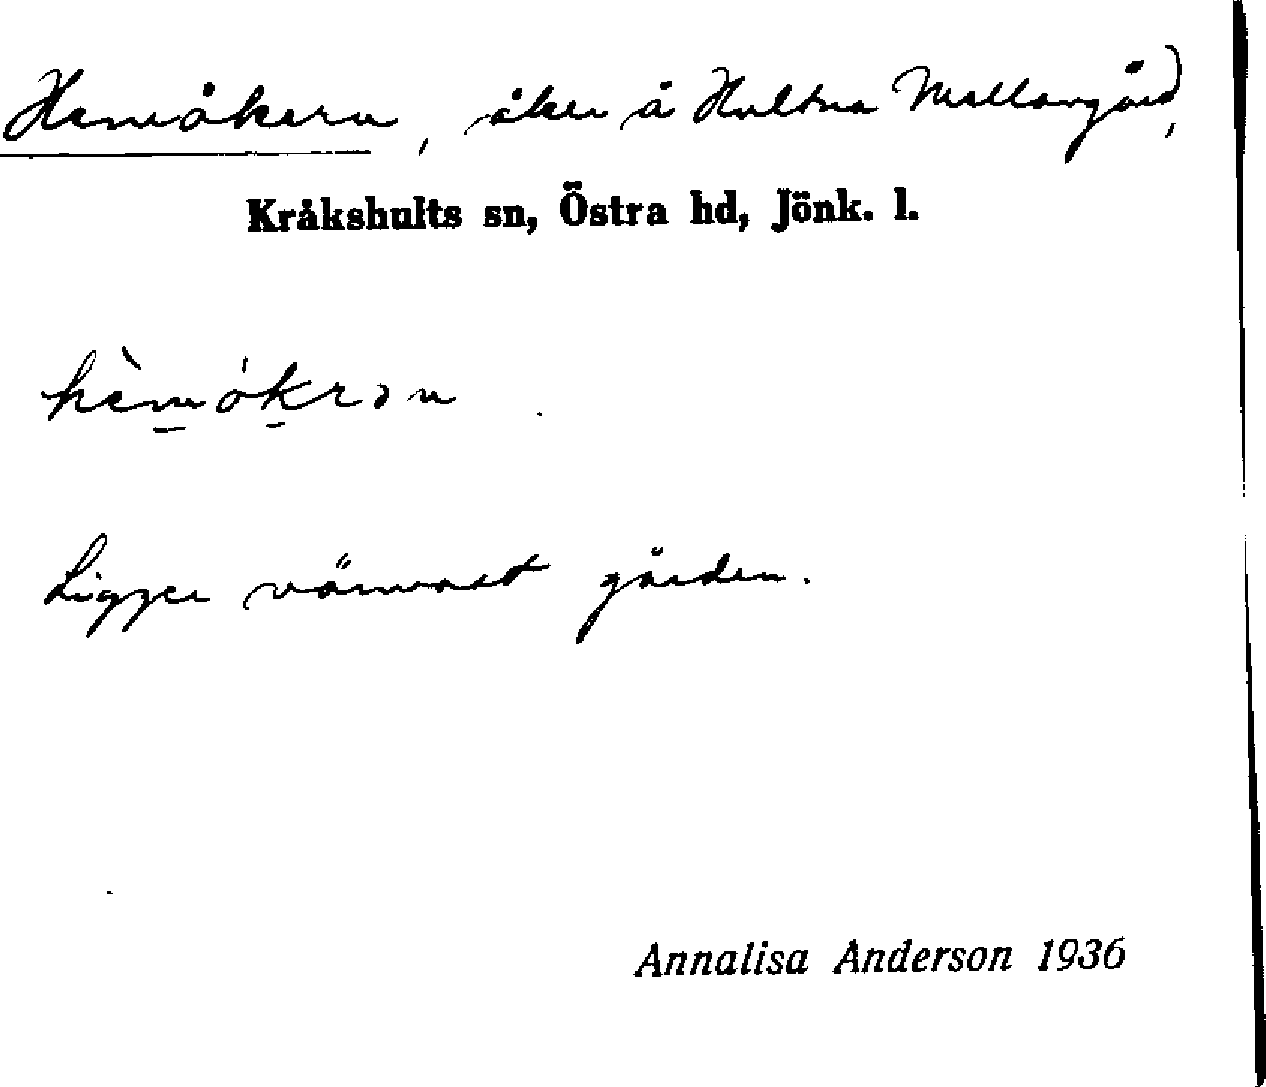 Hemåkern, åker å Hultna Mellangård,
Kråkshults sn, Östra hd, Jönk. l.
hèmókrən
Ligger närmast gården.
Annalisa Anderson 1936